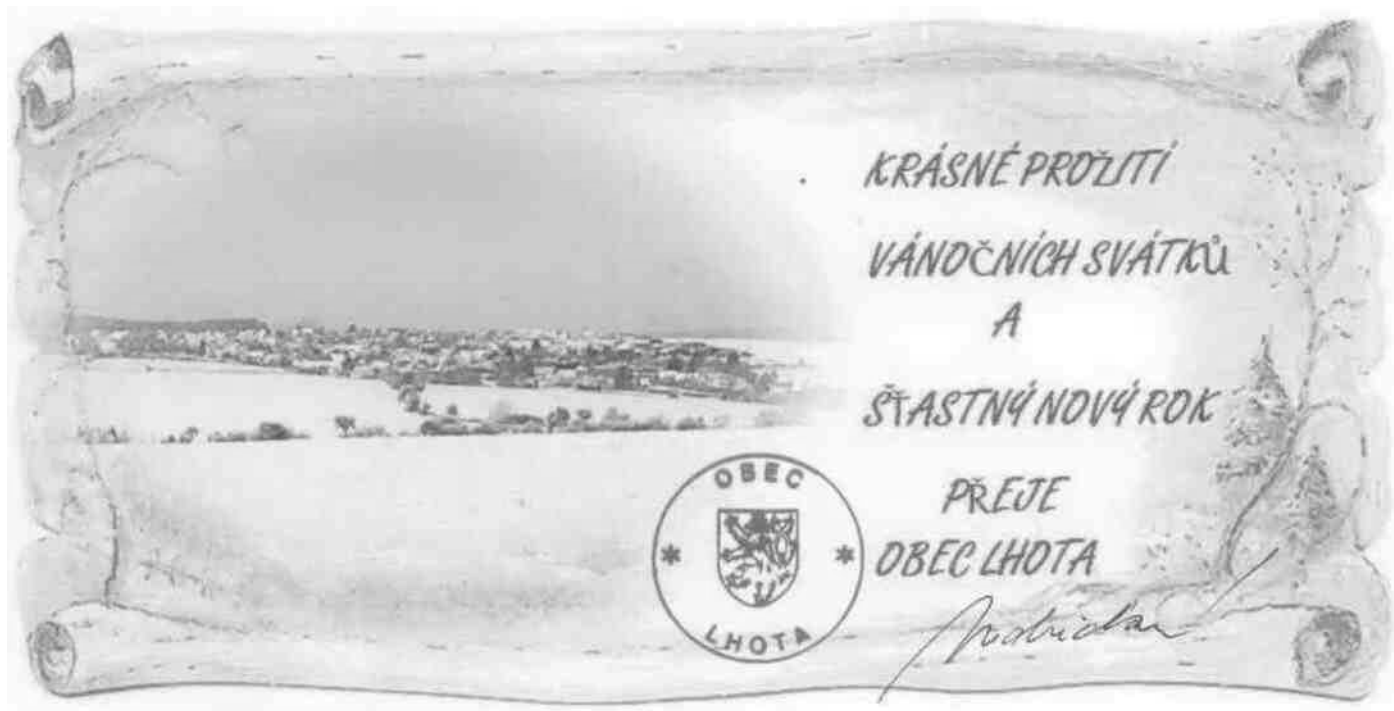 KRÁSNÉ PROŽITÍ
VÁNOČNÍCH SVÁTKŮ
A
ŠŤASTNÝ NOVÝ ROK
PŘEJE
OBEC LHOTA
OBEC
* *
LHOTA